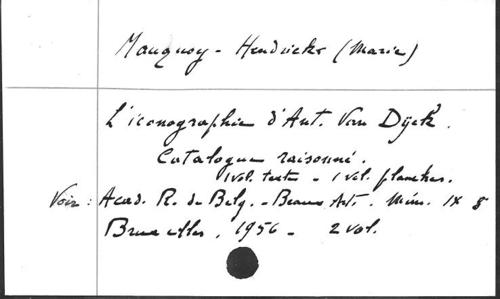 Mauquoy - Hendrickx (Marie)
L'iconographie d'Ant. Van Dyck.
Catalogue raisonné.
1 vol. texte - 1 vol. planches.
Voir : Acad. R. de Belg. - Beaux Arts. Mém. IX 8
Bruxelles, 1956 - 2 vol.